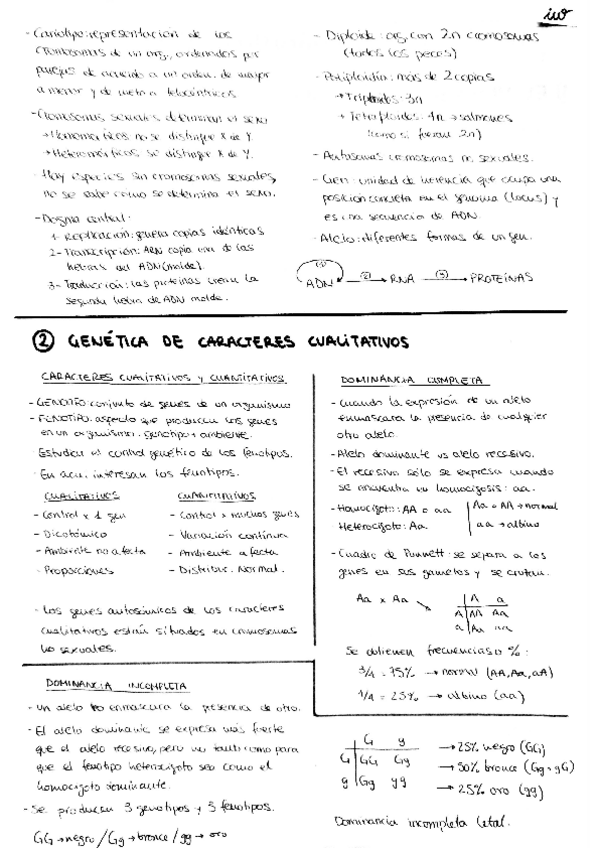 - Cariotipo: representación de los
cromosomas de un org, ordenados por
parejas de acuerdo a un orden: de mayor
a menor y de meta a telocéntricos
- Cromosomas sexuales determinan el sexo
→ Homomórficos no se distingue X de Y.
→ Heteromórficos se distingue X de Y.
- Hay especies sin cromosomas sexuales,
no se sabe como se determina el sexo.
- Dogma central:
1- Replicación: genera copias idénticas
2- Transcripción: ARN copia una de las
hebras del ADN (molde).
3- Traducción: las proteínas crean la
segunda hebra de ADN molde.
- Diploide: org. con 2n cromosomas
(todos los peces)
- Poliploidía: más de 2 copias
→ Triploides: 3n
→ Tetraploides: 4n → salmones
(como si fueran 2n)
- Autosomas cromosomas no sexuales.
- Gen: unidad de herencia que ocupa una
posición concreta en el genoma (locus) y
es una secuencia de ADN.
- Alelo: diferentes formas de un gen.
(1)
ADN —(2)→ RNA —(3)→ PROTEÍNAS
② GENÉTICA DE CARACTERES CUALITATIVOS
CARACTERES CUALITATIVOS y CUANTITATIVOS
- GENOTIPO: conjunto de genes de un organismo
- FENOTIPO: aspecto que producen los genes
en un organismo: genotipo + ambiente.
Estudian el control genético de los fenotipos.
En acu. interesan los fenotipos.
CUALITATIVOS
- Control x 1 gen
- Dicotómico
- Ambiente no afecta
- Proporciones
CUANTITATIVOS
- Control x muchos genes
- Variación continua
- Ambiente afecta
- Distribu. Normal.
- Los genes autosómicos de los caracteres
cualitativos están situados en cromosomas
no sexuales.
DOMINANCIA INCOMPLETA
- Un alelo no enmascara la presencia de otro.
- El alelo dominante se expresa más fuerte
que el alelo recesivo, pero no tanto como para
que el fenotipo heterocigoto sea como el
homocigoto dominante.
- Se producen 3 genotipos y 3 fenotipos.
GG → negro / Gg → bronce / gg → oro
DOMINANCIA COMPLETA
- Cuando la expresión de un alelo
enmascara la presencia de cualquier
otro alelo.
- Alelo dominante vs alelo recesivo.
- El recesivo sólo se expresa cuando
se encuentra en homocigosis: aa.
- Homocigoto: AA o aa
Heterocigoto: Aa.
Aa o AA → normal
aa → albino
- Cuadro de Punnett: se separa a los
genes en sus gametos y se cruzan.
Aa x Aa
A a
A AA Aa
a Aa aa
Se obtienen frecuencias o %:
3/4 = 75% → normal (AA, Aa, aA)
1/4 = 25% → albino (aa)
G g
G GG Gg
g Gg gg
→ 25% negro (GG)
→ 50% bronce (Gg, gG)
→ 25% oro (gg)
Dominancia incompleta letal.